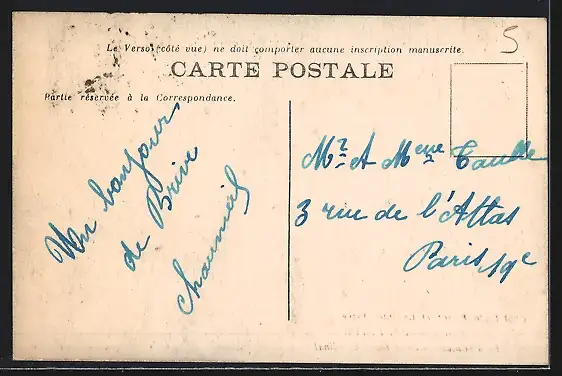 5
Le Verso (côté vue) ne doit comporter aucune inscription manuscrite.
CARTE POSTALE
Partie réservée à la Correspondance.
Un bonjour
de Brive
Mr A Meme
3 rue de l'Atlas
Paris 19e